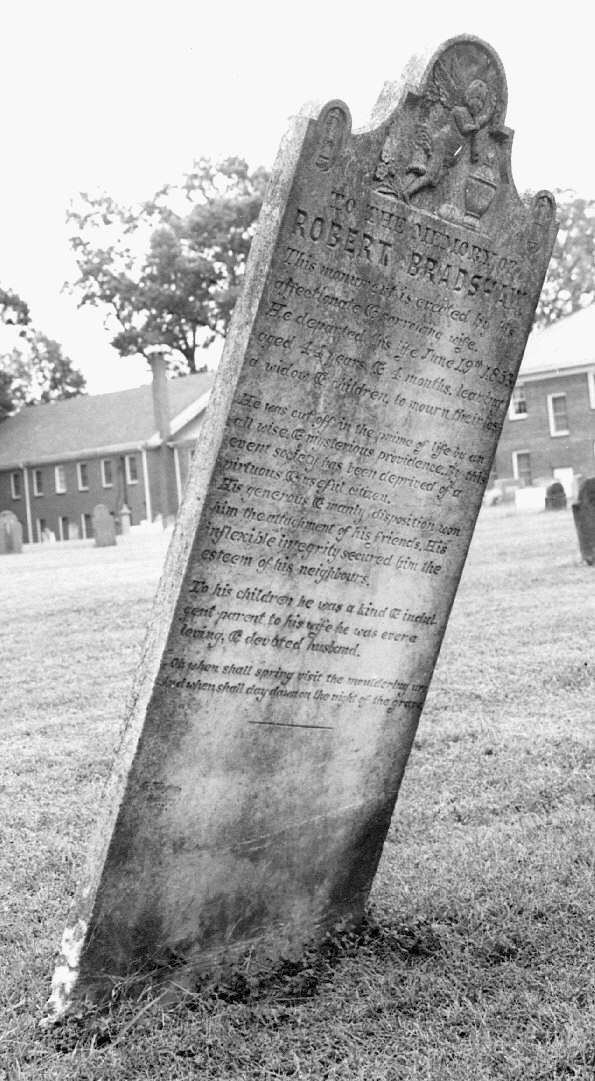 TO THE MEMORY OF
ROBERT BRADSHAW
This monument is erected by his
affectionate & sorrowing wife.
He departed his life June 19th 185
aged 44 years, & 4 months, leaving
a widow & children, to mourn their los
He was cut off in the prime of life by an
all wise, & mysterious providence. By this
event society has been deprived of a
virtuous & useful citizen.
His generous & manly disposition won
him the attachment of his friends. His
inflexible integrity secured him the
esteem of his neighbours.
To his children he was a kind & indul
gent parent to his wife he was ever a
loving, & devoted husband.
Oh when shall spring visit the mouldering urn
And when shall day dawn on the night of the grave